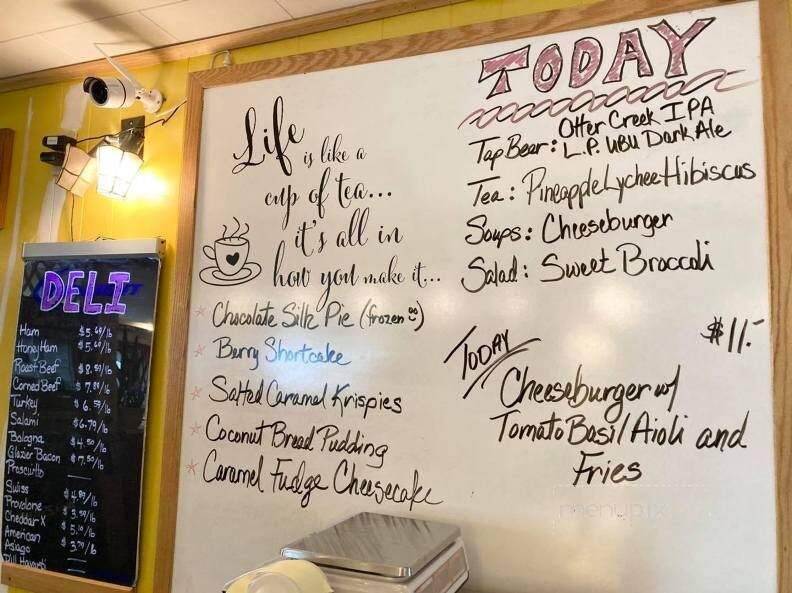 Life
is like a
cup of tea...
it's all in
how you make it...
* Chocolate Silk Pie (frozen)
* Berry Shortcake
* Salted Caramel Krispies
* Coconut Bread Pudding
* Caramel Fudge Cheesecake
TODAY
Tap Beer: Otter Creek IPA
L.P. UBU Dark Ale
Tea: Pineapple Lychee Hibiscus
Soups: Cheeseburger
Salad: Sweet Broccoli
$11.-
TODAY
Cheeseburger w/
Tomato Basil Aioli and
Fries
menupix
DELI
Ham
Honey Ham
Roast Beef $8.59/lb
Corned Beef
Turkey $6.59/lb
Salami $6.79/lb
Bologna $4.50/lb
Glazier Bacon $7.50/lb
Prosciutto
Swiss $4.89/lb
Provolone $3.59/lb
Cheddar X $5.10/lb
American
Asiago
Dill Havarti